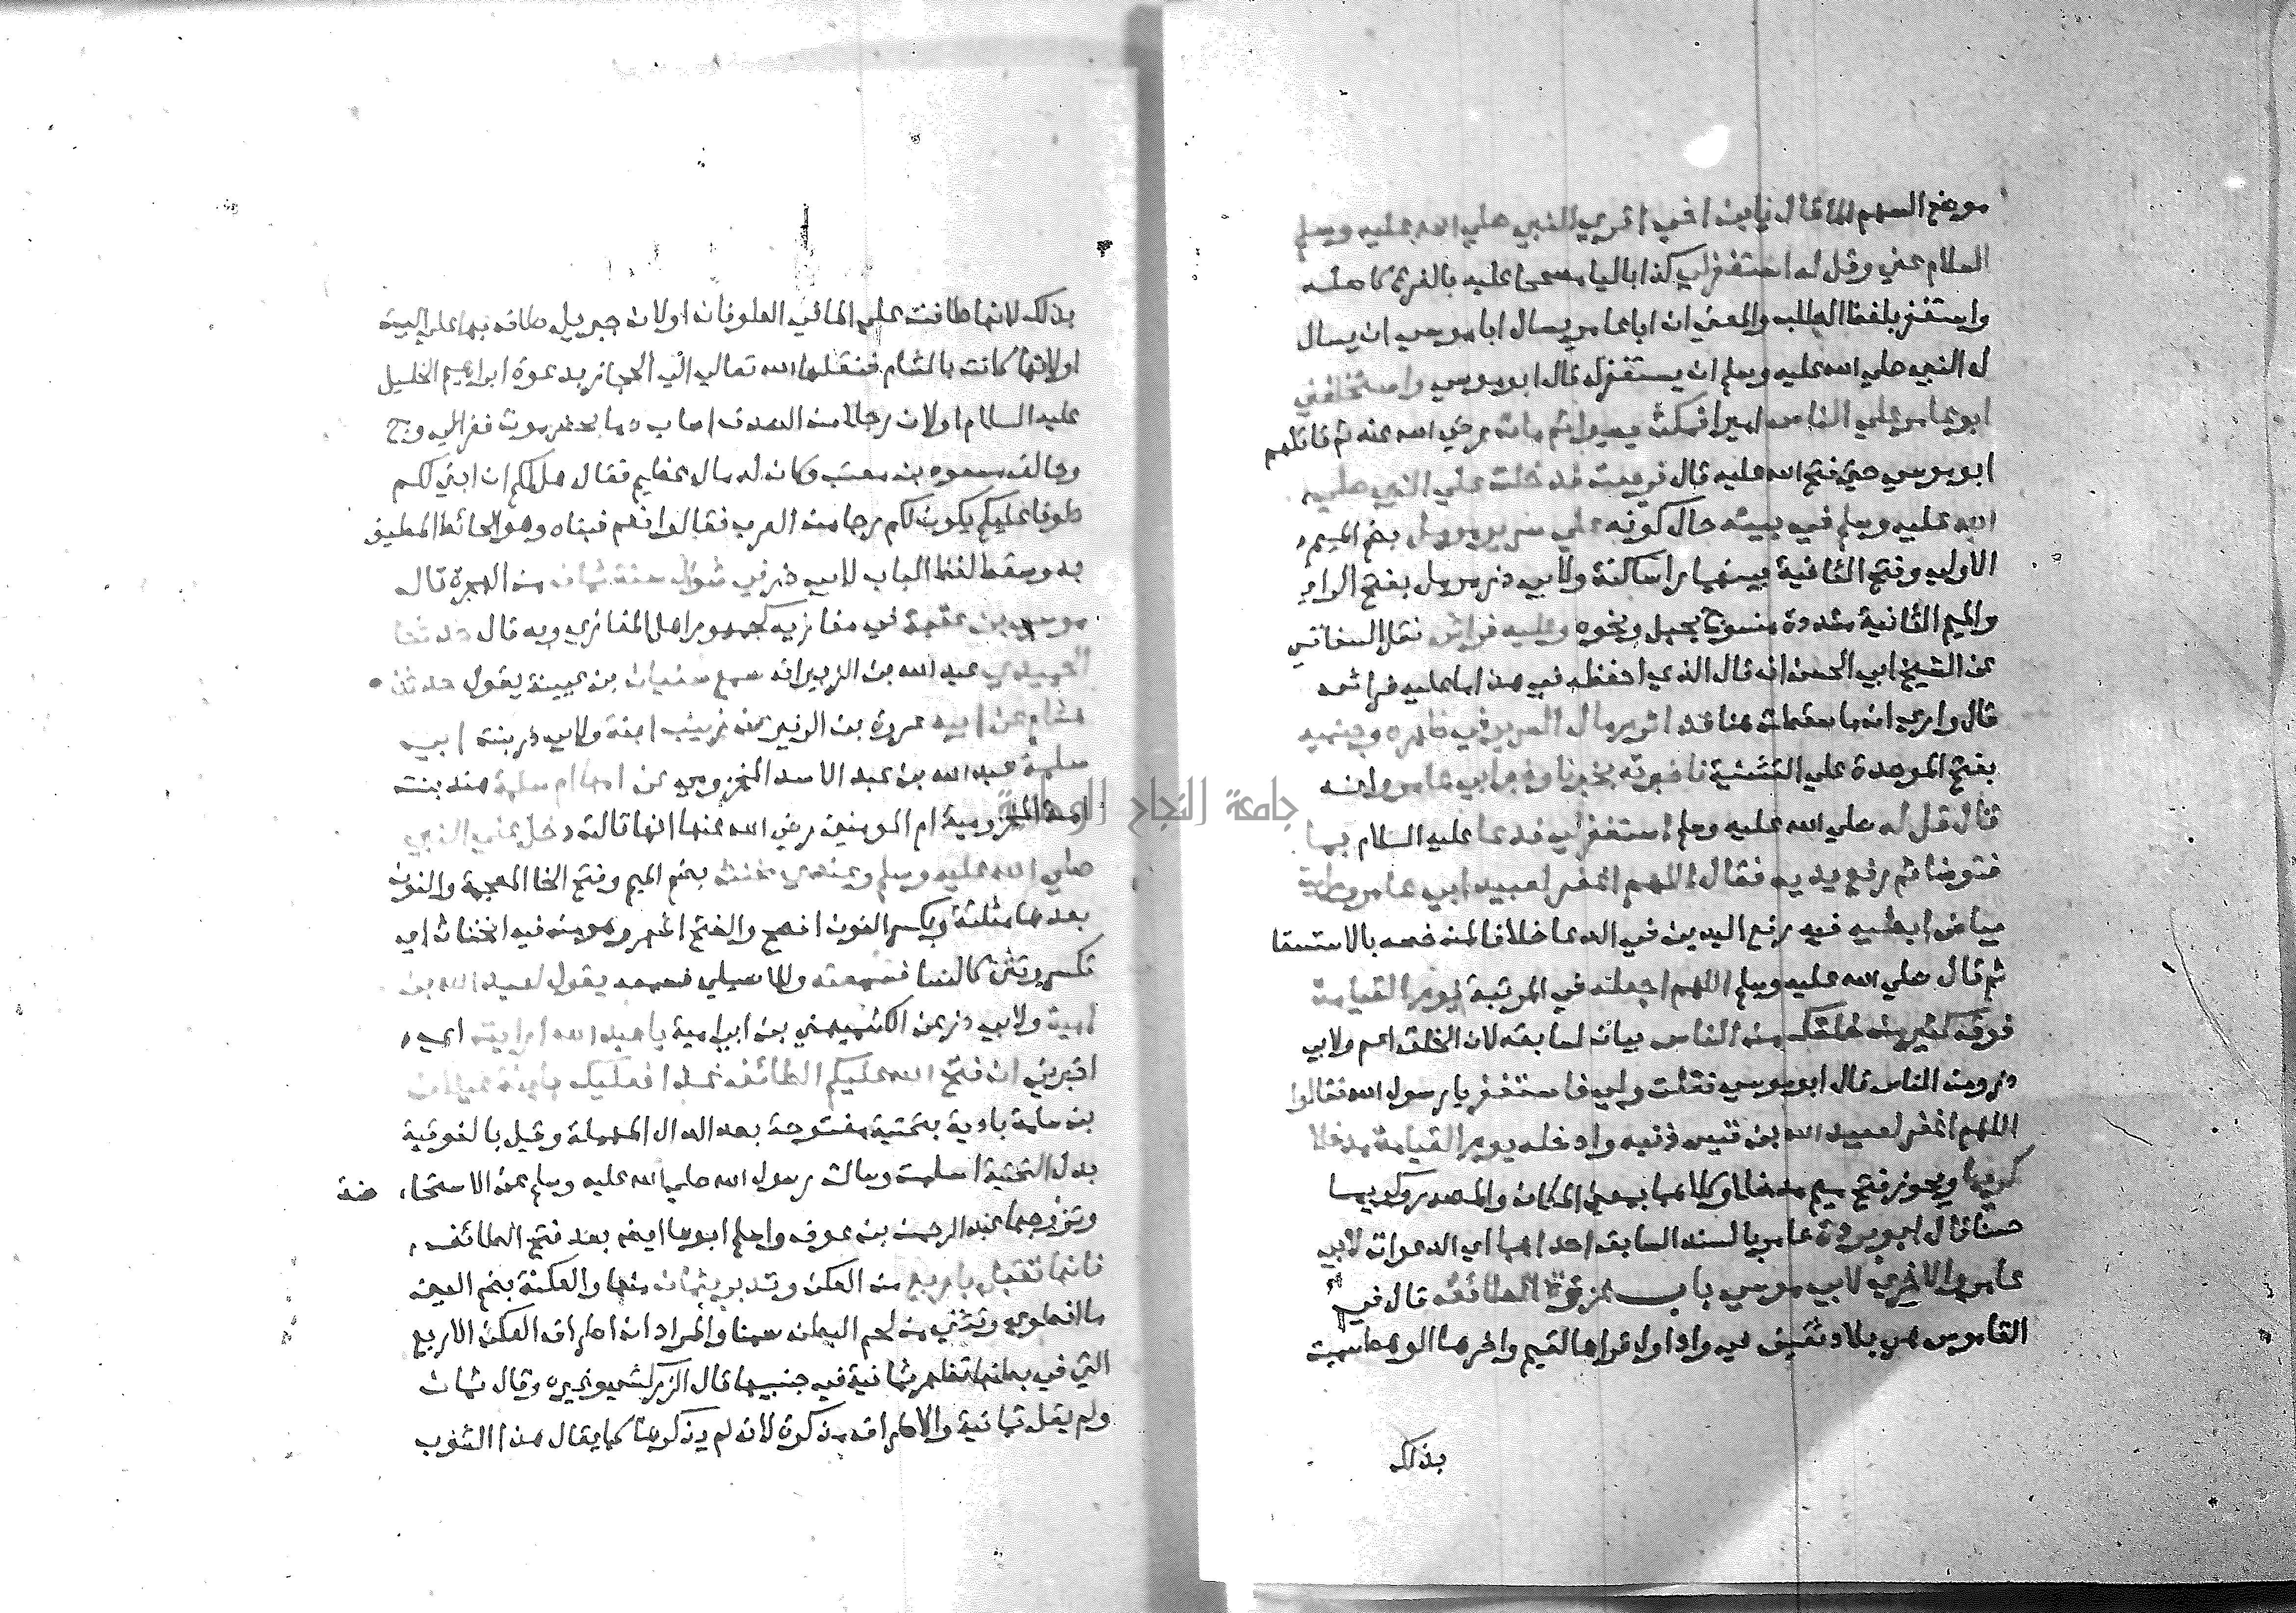 موضع السهم الما قال يا بن اخي اقري النبي صلي الله عليه وسلم
السلام عني وقل له استغفر لي كذا باليا مصححا عليه بالفرع كاصله
واستغفر بلفظ الطلب والمعني ان ابا عامر يسال ابا موسي ان يسال
له النبي صلي الله عليه وسلم ان يستغفر له قال ابو موسي واستخلفني
ابو عامر علي الناس اميرا فمكث يسيرا ثم مات رضي الله عنه ثم قاتلهم
ابو موسي حتي فتح الله عليه قال فرجعت فدخلت علي النبي صلي
الله عليه وسلم في بيته حال كونه علي سرير مرمل بضم الميم
الاولي وفتح الثانية بينهما را ساكنة ولابي ذر مرمل بفتح الراء
والميم الثانية مشددة منسوج بحبل ونحوه وعليه فراش نقل السفاقسي
عن الشيخ ابي الحسن انه قال الذي احفظه في هذا ما عليه فراش
قال واري ان ما سقطت هنا قد اثر رمال السرير في ظهره وجنبيه
بفتح الموحدة علي التثنية فاخبرته بخبرنا وخبر ابي عامر وانه
قال قل له صلي الله عليه وسلم استغفر لي فدعا عليه السلام بما
فتوضا ثم رفع يديه فقال اللهم اغفر لعبيد ابي عامر ورايت
بياض ابطيه فيه رفع اليدين في الدعا خلافا لمن خصه بالاستسقا
ثم قال صلي الله عليه وسلم اللهم اجعله في المرتبة يوم القيامة
فوق كثير من خلقك من الناس بيان لسابقه لان الخلق اعم ولابي
ذر ومن الناس قال ابو موسي فقلت ولي فاستغفر يا رسول الله فقال
اللهم اغفر لعبد الله بن قيس ذنبه وادخله يوم القيامة مدخلا
كريما ويجوز فتح ميم مدخلا وكلاهما بمعني المكان والمصدر وكريما
حسنا قال ابو بردة عامر بالسند السابق احداهما اي الدعوات لابي
عامر والاخري لابي موسي باب غزوة الطائف قال في
القاموس هي بلاد ثقيف في واد اول قراها لقيم واخرها الوهط سميت
بذلك
بذلك لانها طافت علي الما في الطوفان او لان جبريل طاف بها علي البيت
او لانها كانت بالشام فنقلها الله تعالي الي الحجاز بدعوة ابراهيم الخليل
عليه السلام او لان رجلا من الصدف اصاب دما بحضرموت ففر الي وج
وحالف مسعود بن معتب وكان له مال عظيم فقال هل لكم ان ابني لكم
طوفا عليكم يكون لكم ردا من العرب فقالوا نعم فبناه وهو الحائط المطيف
به وسقط لفظ الباب لابي ذر في شوال سنة ثمان من الهجرة قاله
موسي بن عقبة في مغازيه كجمهور اهل المغازي وبه قال حدثنا
الحميدي عبد الله بن الزبير انه سمع سفيان بن عيينة يقول حدثنا
هشام عن ابيه عروة بن الزبير عن زينب ابنة ولابي ذر بنت ابي
سلمة عبد الله بن عبد الاسد المخزومي عن امها ام سلمة هند بنت
امية المخزومية ام المومنين رضي الله عنها انها قالت دخل علي النبي
صلي الله عليه وسلم وعندي مخنث بضم الميم وفتح الخا المعجمة والنون
بعدها مثلثة وبكسر النون افصح والفتح اشهر وهو من فيه انخناث اي
تكسر وتثن كالنسا فسمعته وللاصيلي فسمعه يقول لعبد الله بن
امية ولابي ذر عن الكشميهني بن ابي امية يا عبد الله ارايت اي
اخبرني ان فتح الله عليكم الطائف غدا فعليك بابنة غيلان
بن سلمة بادية بتحتية مفتوحة بعد الدال المهملة وقيل بالفوقية
بدل التحتية اسلمت وسالت رسول الله صلي الله عليه وسلم عن الاستحاضة
وتزوجها عبد الرحمن بن عوف واسلم ابوها ايضا بعد فتح الطائف
فانها تقبل باربع من العكن وتدبر بثمان منها والعكنة بضم العين
ما انطوي وتثني من لحم البطن سمنا والمراد ان اطراف العكن الاربع
التي في بطنها تظهر ثمانية في جنبيها قال الزركشي وغيره وقال ثمان
ولم يقل ثمانية والاطراف مذكرة لانه لم يذكرها كما يقال هذا الثوب
جامعة النجاح الوطنية